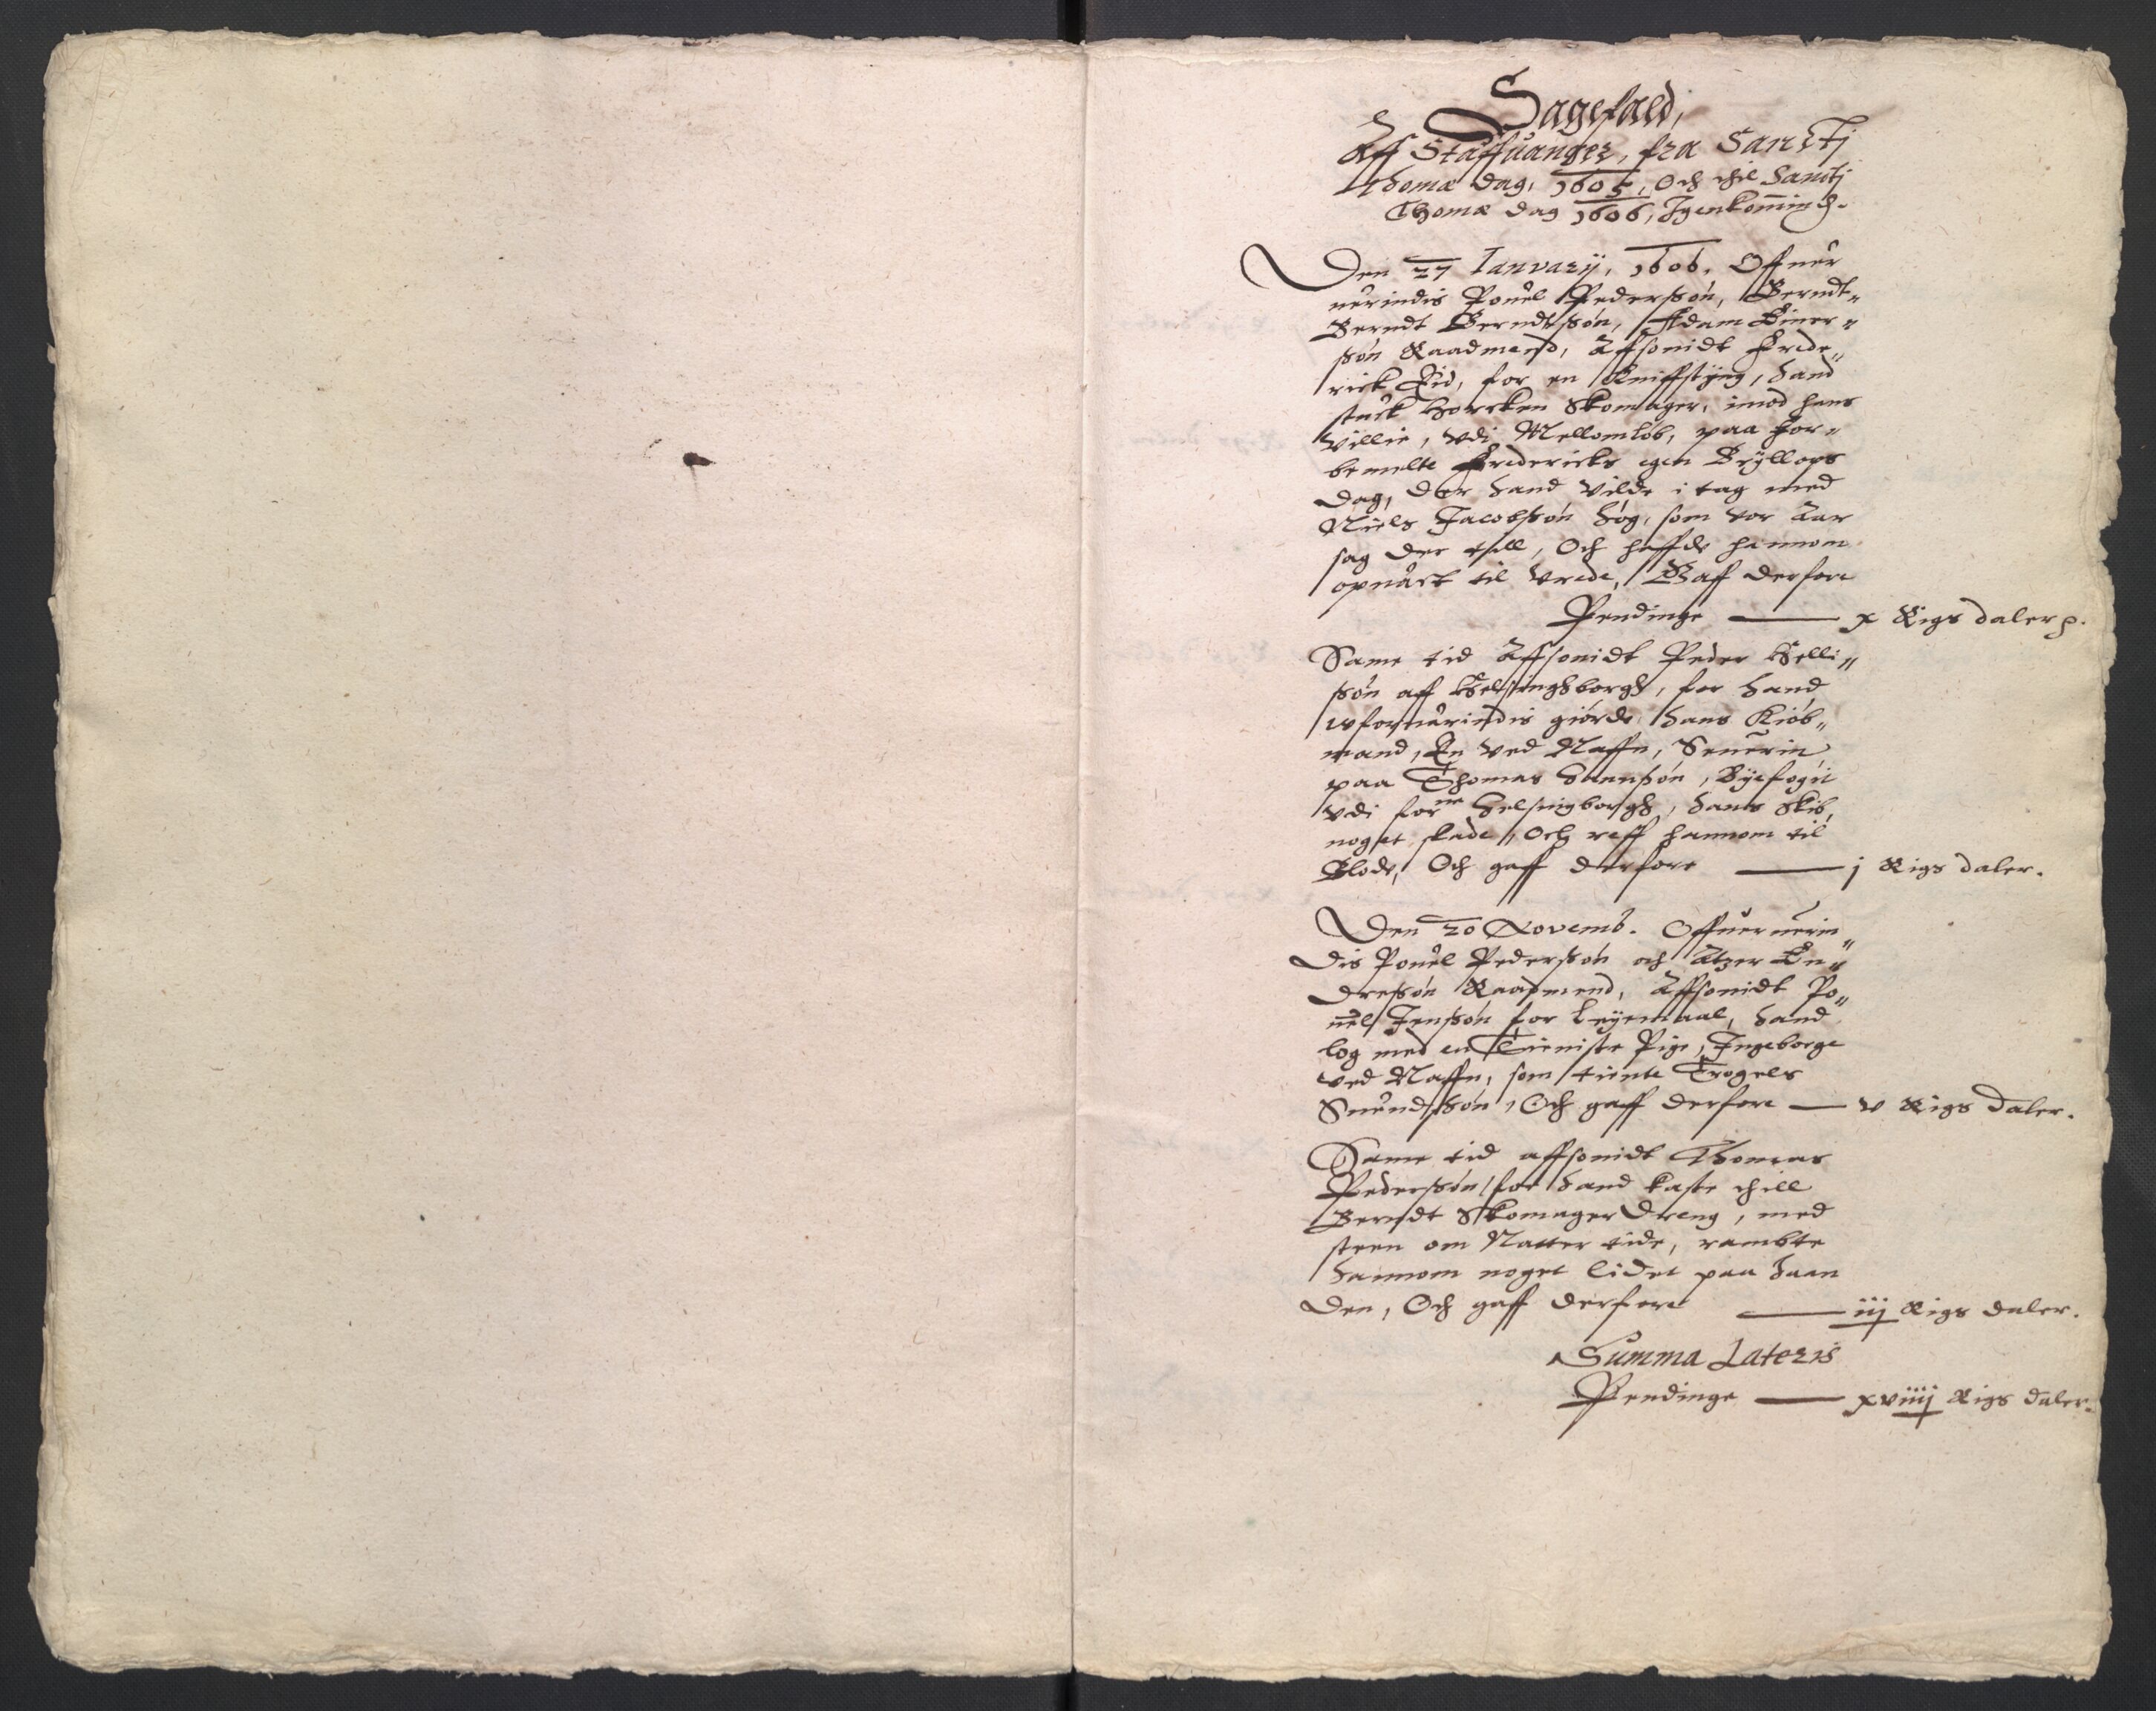 Sagefald,
Aff Staffuanger, fra Sanctj
Thomæ dag, 1605, Och thil Sanctj
Thomæ dag 1606, Igenkommind.
Den 27 Ianuarij, 1606, Offuer
uerindis Pouel Pedersøn, Berndt
Berndt Berndtsøn, Adam Einer„
søn Raadmend, Affsonidt Frede„
rick Eid, for en Kniffstyng, hand
stack Borcken Skomager, imod hans
villie, vdi Mellomløb, paa for„
bemelte Fredericks egen Bryllops
dag, der hand vilde i tag med
Niels Jacobsøn Høg, som vor Aar
sag der till, Och haffde hannom
opuackt til vrede, Gaff derfore
Pendinge — x Rigs daler
Same tid Affsonidt Peder Helli„
søn aff Helsinghborgh, for hand
uforuarindis giorde hans Kiøb„
mand, En ved Naffn, Seuerin
paa Thomas Hanssøn, Byefogit
vdi for ne Helsingborgh, hans Skib,
noget skade, Och reff hannom til
Blode, Och gaff derfore — j Rigs daler.
Den 20 Novemb. Offuer uerin„
dis Pouel Pedersøn och Atzer En„
dresøn Raadmend, Affsonidt Po„
uel Jensøn for Leyemaal, hand
log med en Tieniste Pige, Ingeborge
ved Naffn, som tiente Trogels
Suendssøn, Och gaff derfore — v Rigs daler.
Same tid affsonidt Thomas
Pedersøn for hand kaste thill
Berndt Skomager Dreng, med
steen om Natter tide, rambte
hannom noget lidet paa haan
den, Och gaff derfore — iij Rigs daler.
Summa Lateris
Pendinge — xviiij Rigs daler.